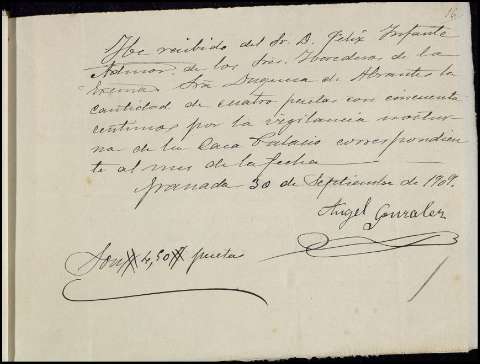 He recibido del Sr. D. Felix Infante
Admor. de los Sres. Herederos de la
Excma. Sra Duquesa de Abrantes la
cantidad de cuatro pesetas con cincuenta
centimos por la vigilancia noctur-
na de la Casa correspondien-
te al mes de la fecha
Granada 30 de Septiembre de 1909.
Angel Gonzalez
Son 4,50 pesetas